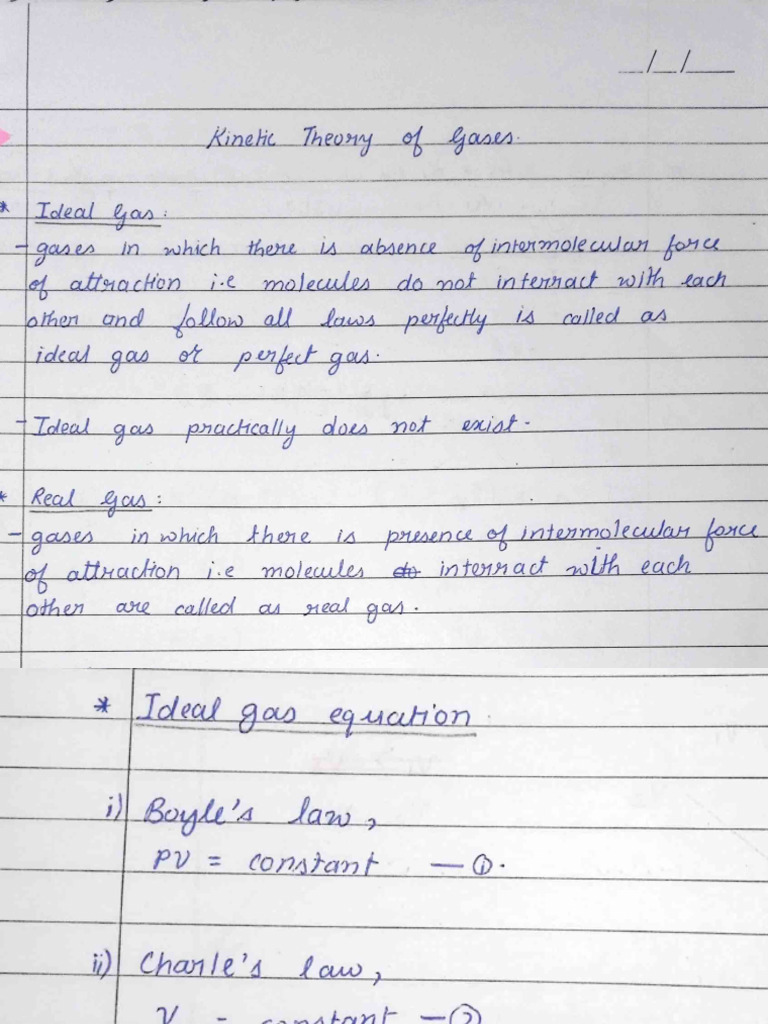 __/__/____
Kinetic Theory of Gases.
* Ideal Gas:
- gases in which there is absence of intermolecular force
of attraction i.e molecules do not interract with each
other and follow all laws perfectly is called as
ideal gas or perfect gas.
- Ideal gas practically does not exist.
* Real Gas:
- gases in which there is presence of intermolecular force
of attraction i.e molecules interract with each
other are called as real gas.
* Ideal gas equation
i) Boyle's law,
PV = constant — ①.
ii) Charle's law,
V = constant — ②